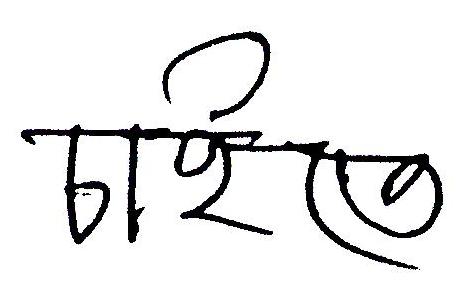 চাইতে